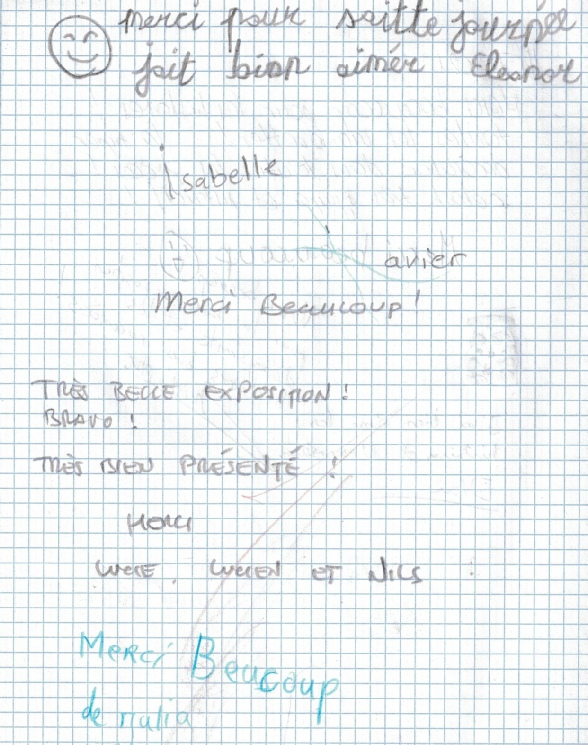 merci pour saitte journée
jait bien aimér Eleonor
Isabelle
avier
Merci Beaucoup !
TRÈS BELLE EXPOSITION !
BRAVO !
TRÈS BIEN PRÉSENTÉ !
MERCI
LUCIE, LUCIEN ET NILS
Merci Beucoup
de